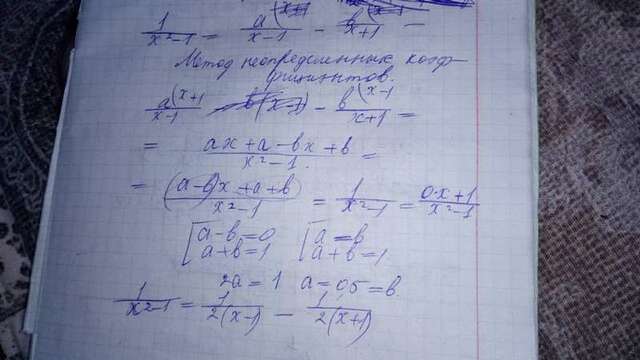 1/(x²-1) = a(x+1/(x-1) - в(x-1/(x+1) -
Метод неопределенных коэф-
фициентов.
a(x+1/(x-1) - в(x-1/(x+1) =
= (ax+a-вx+в)/(x²-1) =
= ((a-в)x+a+в)/(x²-1) = 1/(x²-1) = (0·x+1)/(x²-1)
[a-в=0 [a=в
[a+в=1 [a+в=1
2a=1 a=0,5=в
1/(x²-1) = 1/(2(x-1)) - 1/(2(x+1))